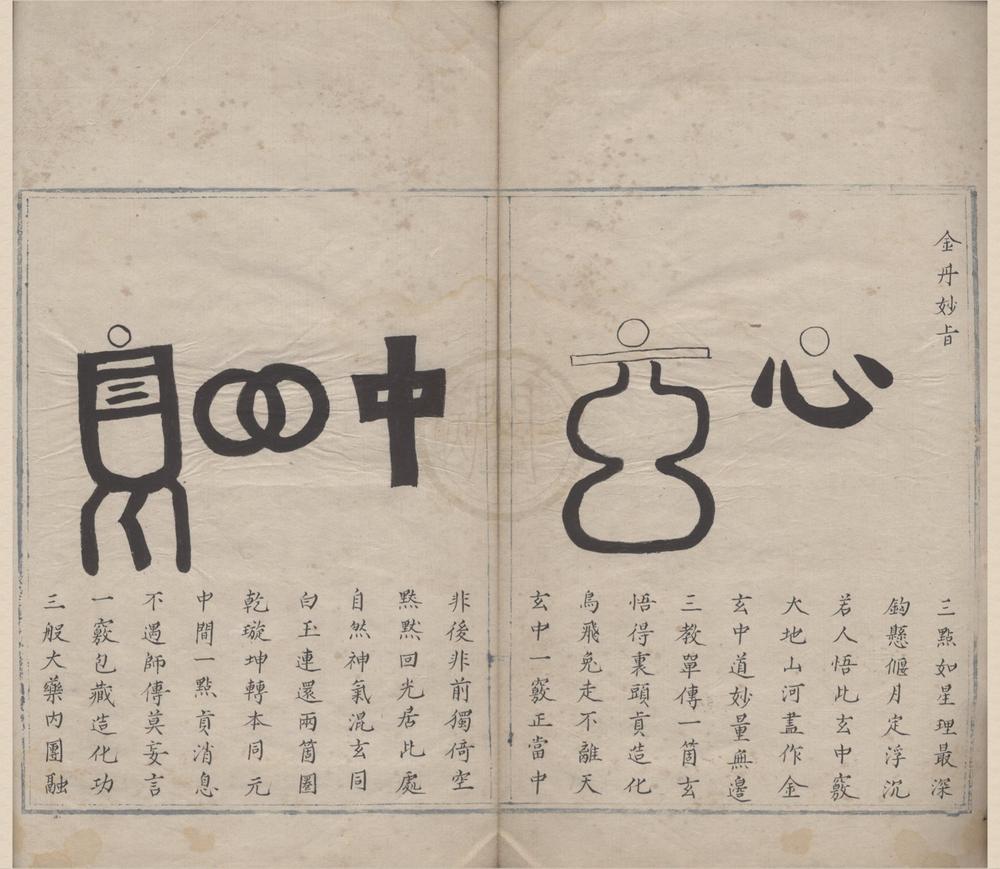 金丹妙旨
心
玄
中
三點如星理最深
鈎懸偃月定浮沉
若人悟此玄中竅
大地山河盡作金
玄中道妙量無邊
三教單傳一箇玄
悟得裏頭真造化
烏飛兔走不離天
玄中一竅正當中
非後非前獨倚空
黙黙回光居此處
自然神氣混玄同
白玉連還兩箇圈
乾璇坤轉本同元
中間一點真消息
不遇師傳莫妄言
一竅包藏造化功
三般大藥內團融